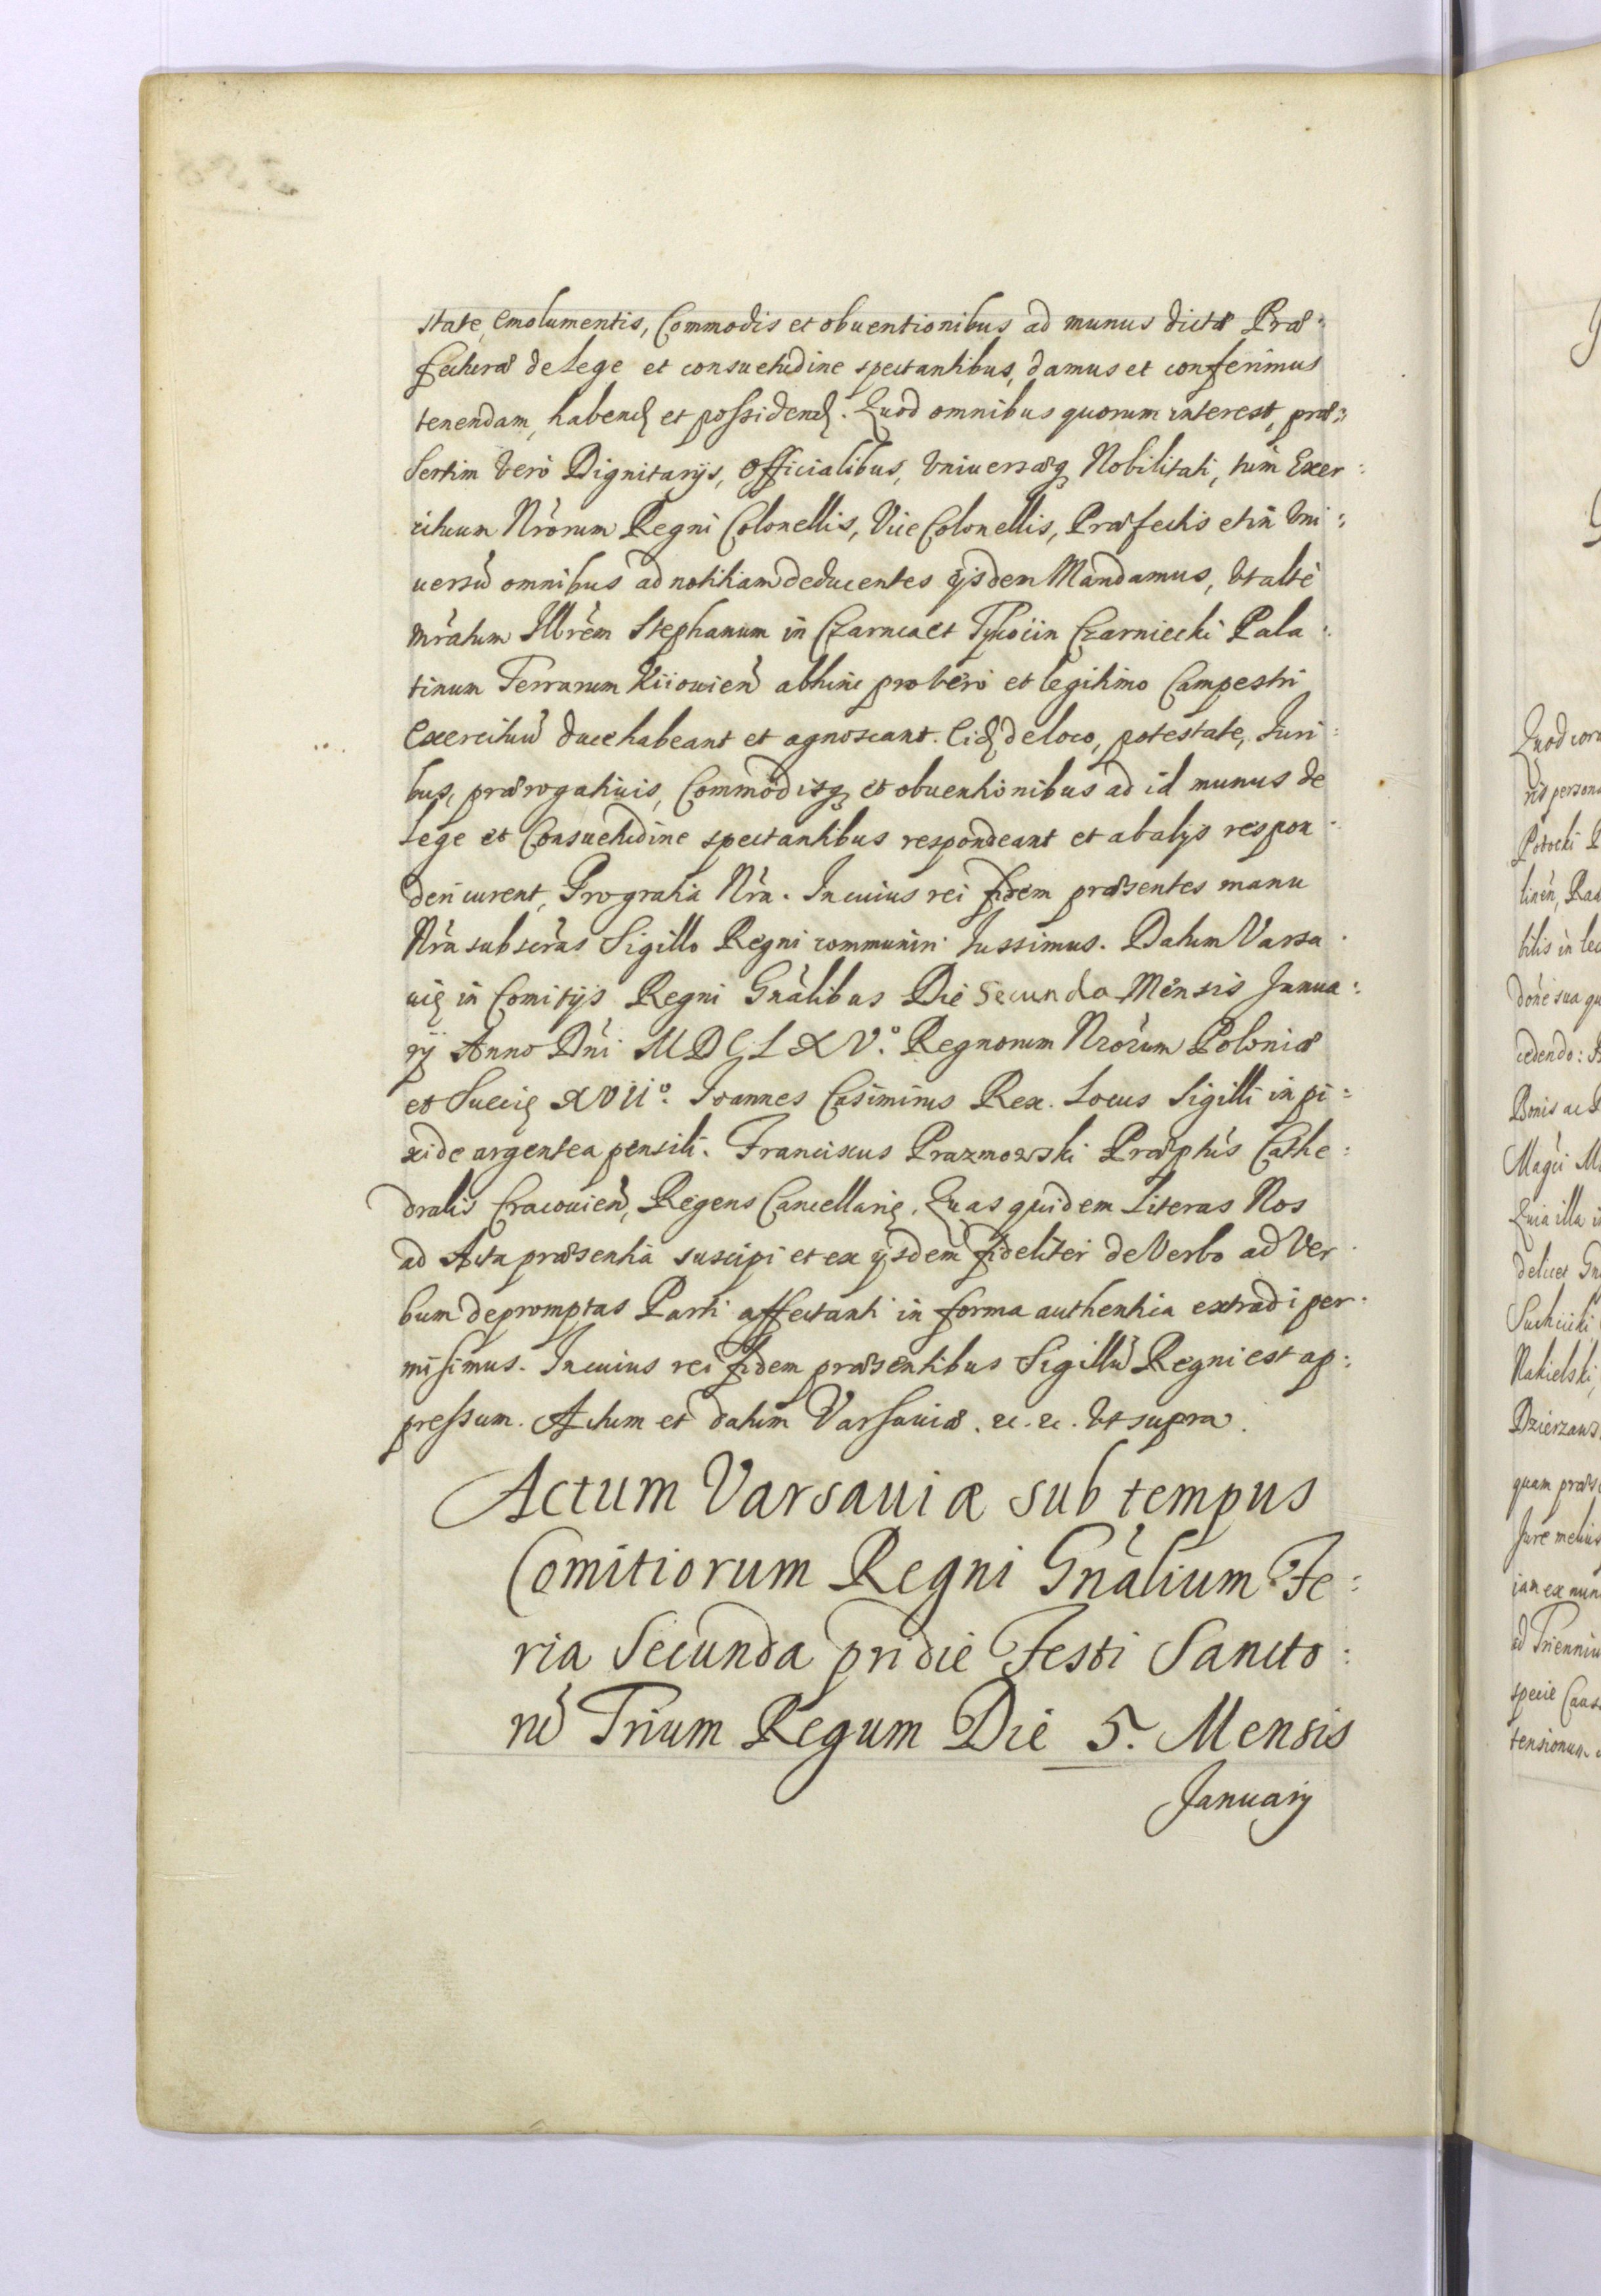 state, Emolumentis, Commodis et obuentionibus ad munus dictæ Præ:
fecturæ de Lege et consuetudine spectantibus, damus et conferimus
tenendam, habend et possidend. Quod omnibus quorum interest, præ:
sertim verò Dignitarijs, Officialibus, Vniuersæq Nobilitati, tum Exer:
cituum Nrorum Regni Colonellis, Vice Colonellis, Præfectis et in Vni:
uersu omnibus ad notitiam deducentes ijsdem Mandamus, Vt altè
mratum Illrem Stephanum in Czarnca et Tykocin Czarniecki Pala:
tinum Terrarum Kiiouien abhinc pro vero et legitimo Campestri
Exercituu duce habeant et agnoscant. Eiq de loco, potestate, Iuri:
bus, prærogatiuis, Commodisq et obuentionibus ad id munus de
Lege et Consuetudine spectantibus respondeant et ab alijs respon:
deri curent, Pro gratia Nra. In cuius rei fidem præsentes manu
Nra subscras Sigillo Regni communiri Iussimus. Datum Varsa:
uię in Comitijs Regni Gnalibus Die Secunda Mensis Janua:
rij Anno Dni MDCLXV.° Regnorum Nrorum Poloniæ
et Suecię XVII°. Joannes Casimirus Rex. Locus Sigilli in pi:
xide argentea pensili. Franciscus Prazmowski Præptus Cathe:
dralis Cracouien, Regens Cancellarię. Quas quidem Literas Nos
ad Acta præsentia suscipi et ex ijsdem fideliter de Verbo ad Ver:
bum depromptas Parti affectanti in forma authentica extradi per:
misimus. In cuius rei fidem præsentibus Sigillu Regni est ap:
pressum. Actum et datum Varsauiæ. &c. &c. Vt supra.
Actum Varsauiæ sub tempus
Comitiorum Regni Gnalium Fe:
ria Secunda pridie Festi Sancto:
ru Trium Regum Die 5. Mensis
Januarij